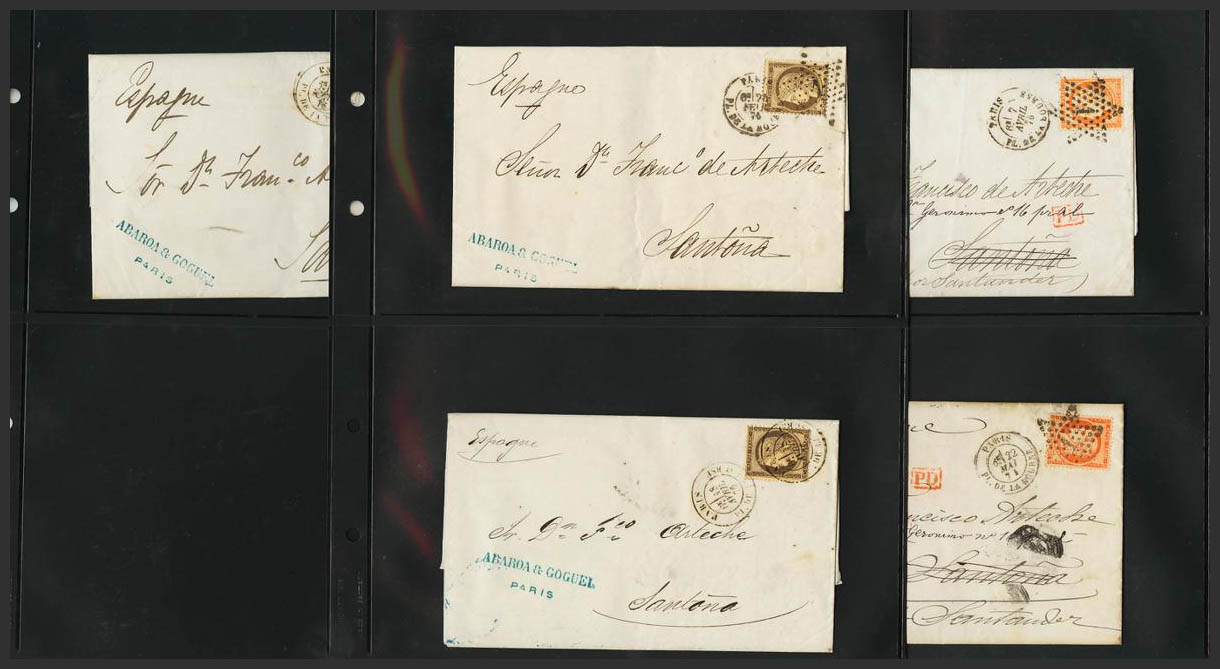 Espagne
Sr. Dn Franco A
Sa
ABAROA & GOGUEL
PARIS
Espagne
PARIS
PL. DE LA BOURSE
Señor Dn Franco de Arteche
Santoña
ABAROA & GOGUEL
PARIS
PARIS
7
AVRIL
PL. DE LA BOURSE
1
Francisco de Arteche
Geronimo nº 16 pral
PD
Santoña
Santander)
Espagne
PARIS
PL. DE
Sr. Dn Fco Arteche
ABAROA & GOGUEL
PARIS
Santoña
PARIS
22
MAI
PL. DE LA BOURSE
PD
ncisco Arteche
Geronimo nº 1
Santoña
Santander